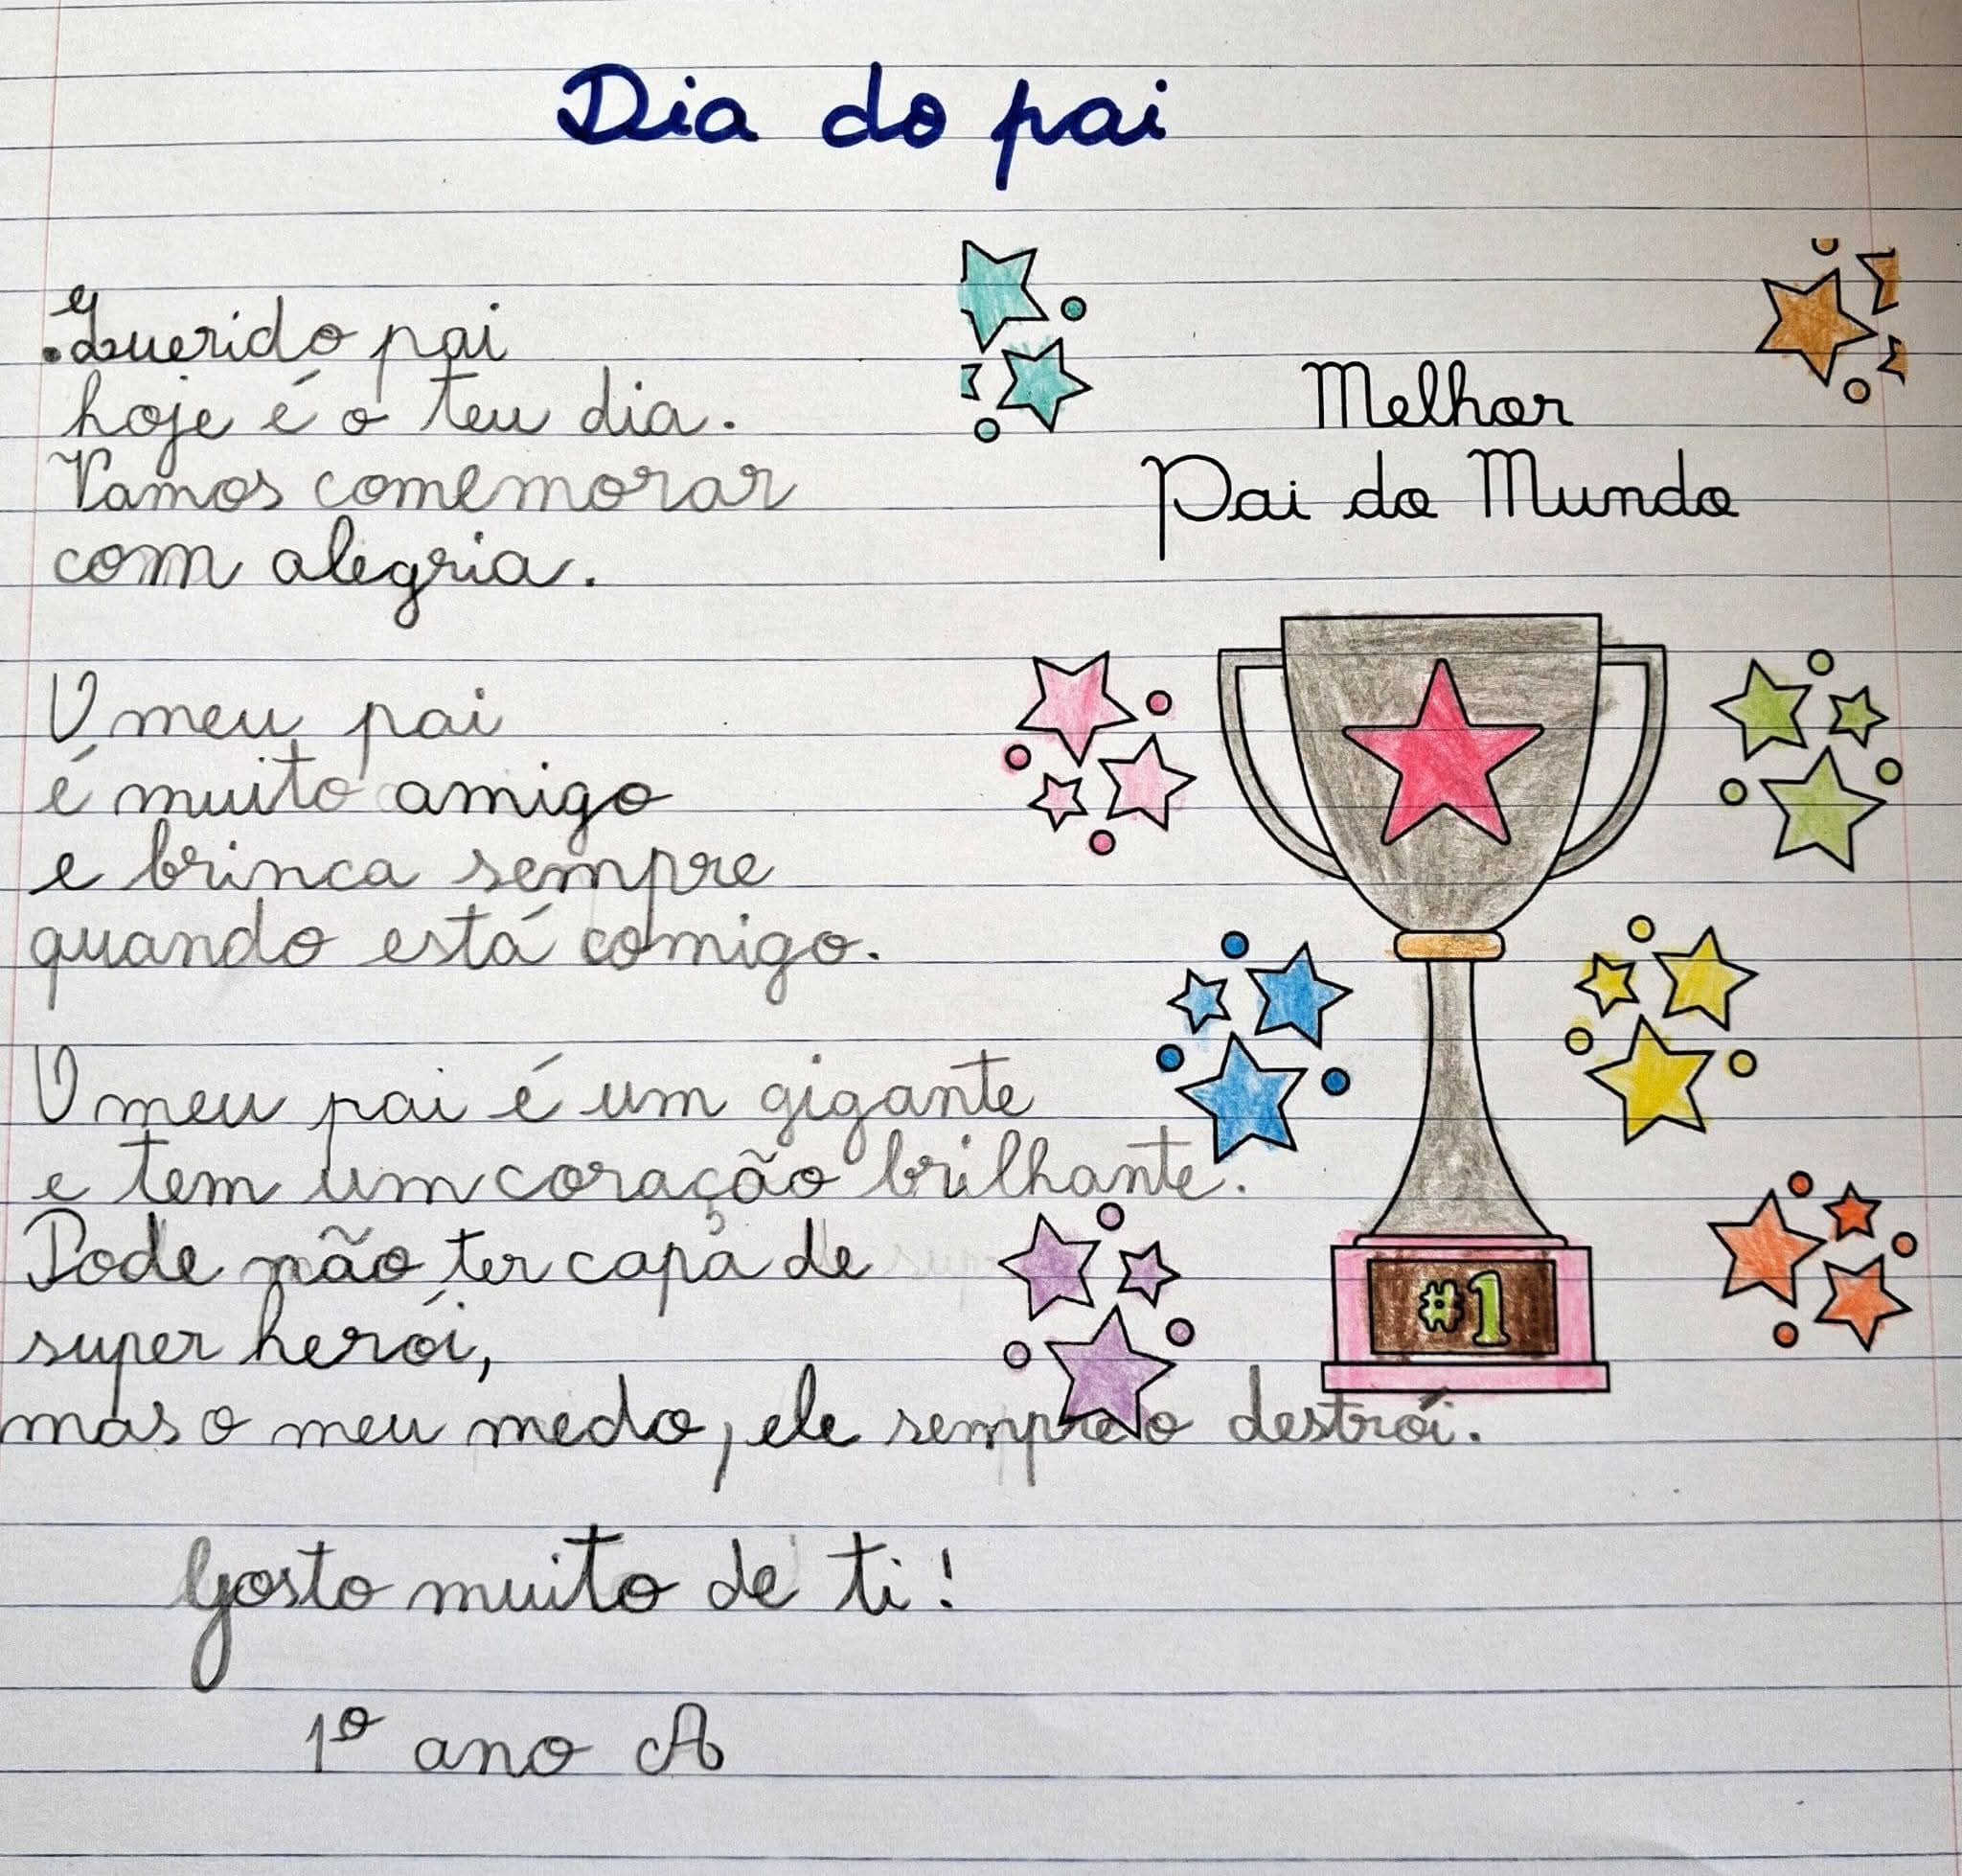 Dia do pai
Querido pai
hoje é o teu dia.
Vamos comemorar
com alegria.
Melhor
Pai do Mundo
O meu pai
é muito amigo
e brinca sempre
quando está comigo.
O meu pai é um gigante
e tem um coração brilhante.
Pode não ter capa de
super herói,
mas o meu medo, ele sempre o destrói.
#1
Gosto muito de ti!
1º ano A